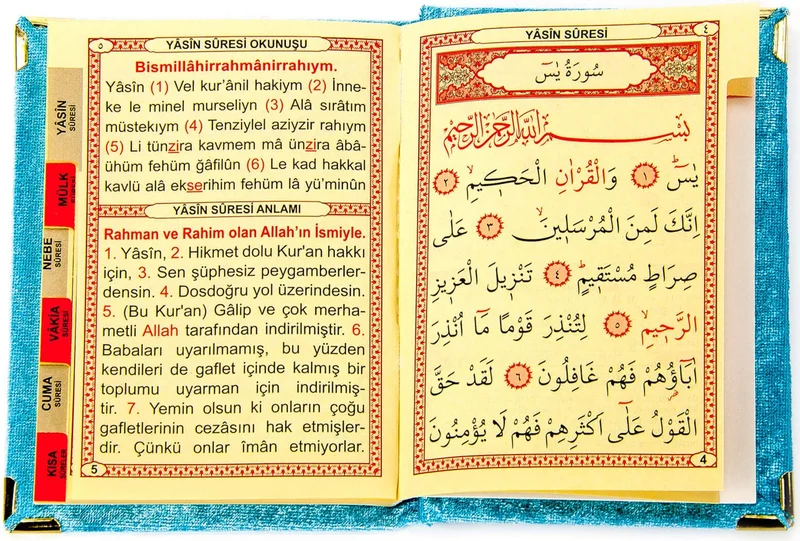 ٥
YÂSÎN SÛRESİ OKUNUŞU
Bismillâhirrahmânirrahıym.
Yâsîn (1) Vel kur’ânil hakiym (2) İnne-
ke le minel murseliyn (3) Alâ sırâtım
müstekıym (4) Tenziylel aziyzir rahıym
(5) Li tünzira kavmem mâ ünzira âbâ-
ühüm fehüm ğafilûn (6) Le kad hakkal
kavlü alâ ekserihim fehüm lâ yü’minûn
YÂSÎN SÛRESİ ANLAMI
Rahman ve Rahim olan Allah’ın İsmiyle.
1. Yâsîn, 2. Hikmet dolu Kur'an hakkı
için, 3. Sen şüphesiz peygamberler-
densin. 4. Dosdoğru yol üzerindesin.
5. (Bu Kur'an) Gâlip ve çok merha-
metli Allah tarafından indirilmiştir. 6.
Babaları uyarılmamış, bu yüzden
kendileri de gaflet içinde kalmış bir
toplumu uyarman için indirilmiş-
tir. 7. Yemin olsun ki onların çoğu
gafletlerinin cezâsını hak etmişler-
dir. Çünkü onlar îmân etmiyorlar.
5
YÂSÎN SÛRESİ
MÜLK
NEBE SÛRESİ
VÂKIA SÛRESİ
CUMA SÛRESİ
KISA SÛRELER
YÂSÎN SÛRESİ
٤
سُورَةُ يٰسٓ
بِسْمِ اللّٰهِ الرَّحْمٰنِ الرَّحٖيمِ
يٰسٓ ﴿١﴾ وَالْقُرْاٰنِ الْحَكٖيمِۙ ﴿٢﴾
اِنَّكَ لَمِنَ الْمُرْسَلٖينَۙ ﴿٣﴾ عَلٰى
صِرَاطٍ مُسْتَقٖيمٍؕ ﴿٤﴾ تَنْزٖيلَ الْعَزٖيزِ
الرَّحٖيمِۙ ﴿٥﴾ لِتُنْذِرَ قَوْمًا مَٓا اُنْذِرَ
اٰبَٓاؤُ۬هُمْ فَهُمْ غَافِلُونَ ﴿٦﴾ لَقَدْ حَقَّ
الْقَوْلُ عَلٰٓى اَكْثَرِهِمْ فَهُمْ لَا يُؤْمِنُونَ
4